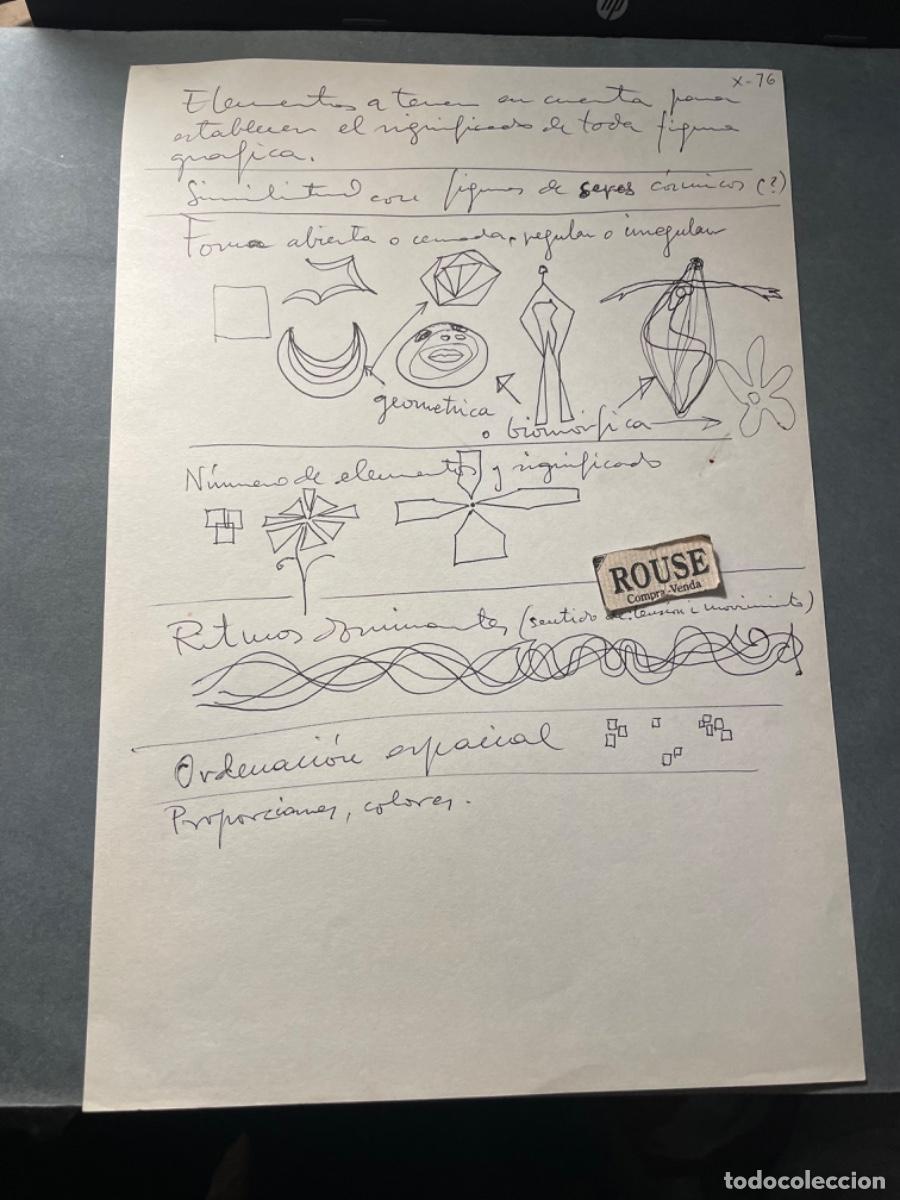 X-76
Elementos a tener en cuenta para
establecer el significado de toda figura
grafica.
Similitud con figuras de seres cósmicos (?)
Forma abierta o cerrada, regular o irregular
geometrica
o biomórfica
Número de elementos y significado
ROUSE
Compra-Venta
Ritmos dominantes (sentido de tensión i movimiento)
Ordenación espacial
Proporciones, colores.
hp
todocoleccion